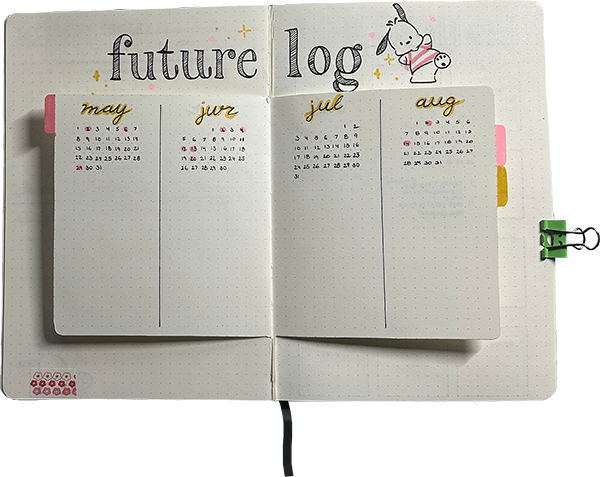 future log
may
1 2 3 4 5 6 7
8 9 10 11 12 13 14
15 16 17 18 19 20 21
22 23 24 25 26 27 28
29 30 31
jun
1 2 3 4
5 6 7 8 9 10 11
12 13 14 15 16 17 18
19 20 21 22 23 24 25
26 27 28 29 30
jul
1 2
3 4 5 6 7 8 9
10 11 12 13 14 15 16
17 18 19 20 21 22 23
24 25 26 27 28 29 30
31
aug
1 2 3 4 5 6
7 8 9 10 11 12 13
14 15 16 17 18 19 20
21 22 23 24 25 26 27
28 29 30 31